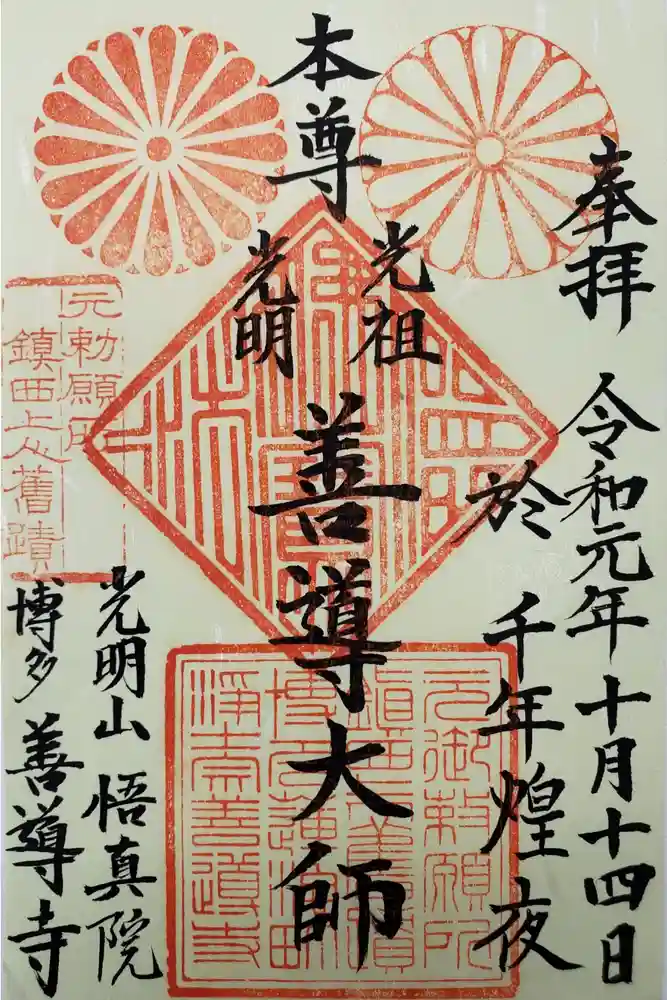 奉拝
令和元年十月十四日
於 千年煌夜
本尊
光祖
光明
善導大師
光明山 悟真院
博多 善導寺
元勅願所
鎮西上人舊蹟
元御勅願所